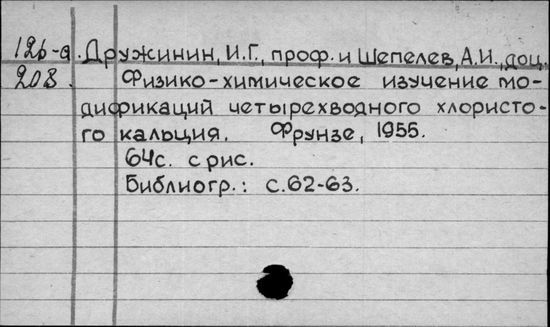 126-а. Дружинин, И.Г., проф. и Шепелев, А.И., доц.
208. Физико-химическое изучение мо-
дификаций четырехводного хлористо-
го кальция. Фрунзе, 1955.
64с. с рис.
Библиогр.: с.62-63.